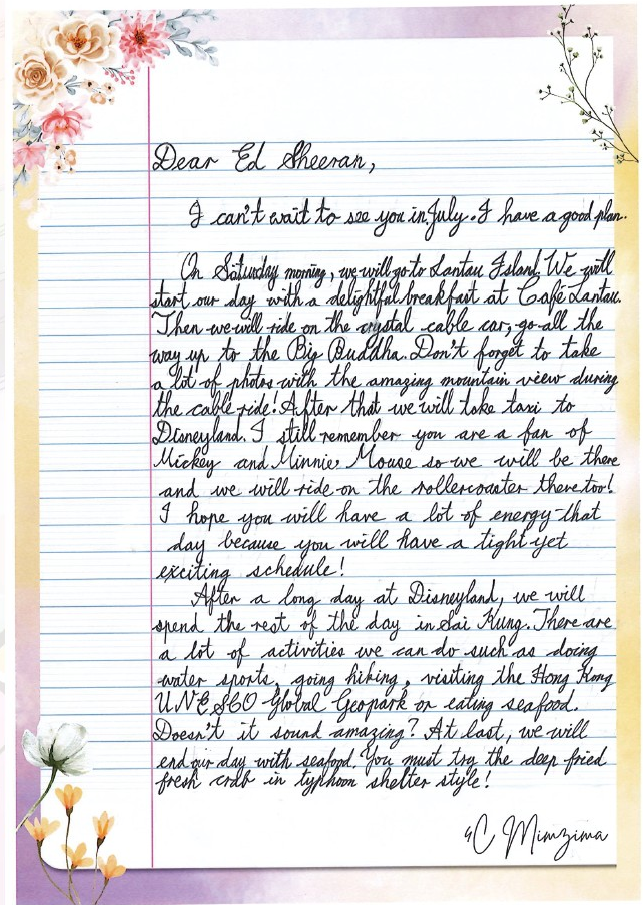 Dear Ed Sheeran,
I can't wait to see you in July. I have a good plan.
On Saturday morning, we will go to Lantau Island. We will
start our day with a delightful breakfast at Café Lantau.
Then we will ride on the crystal cable car, go all the
way up to the Big Buddha. Don't forget to take
a lot of photos with the amazing mountain view during
the cable ride! After that we will take taxi to
Disneyland. I still remember you are a fan of
Mickey and Minnie Mouse so we will be there
and we will ride on the rollercoaster there too!
I hope you will have a lot of energy that
day because you will have a tight yet
exciting schedule!
After a long day at Disneyland, we will
spend the rest of the day in Sai Kung. There are
a lot of activities we can do such as doing
water sports, going hiking, visiting the Hong Kong
UNESCO Global Geopark or eating seafood.
Doesn't it sound amazing? At last, we will
end our day with seafood. You must try the deep fried
fresh crab in typhoon shelter style!
Mimzima